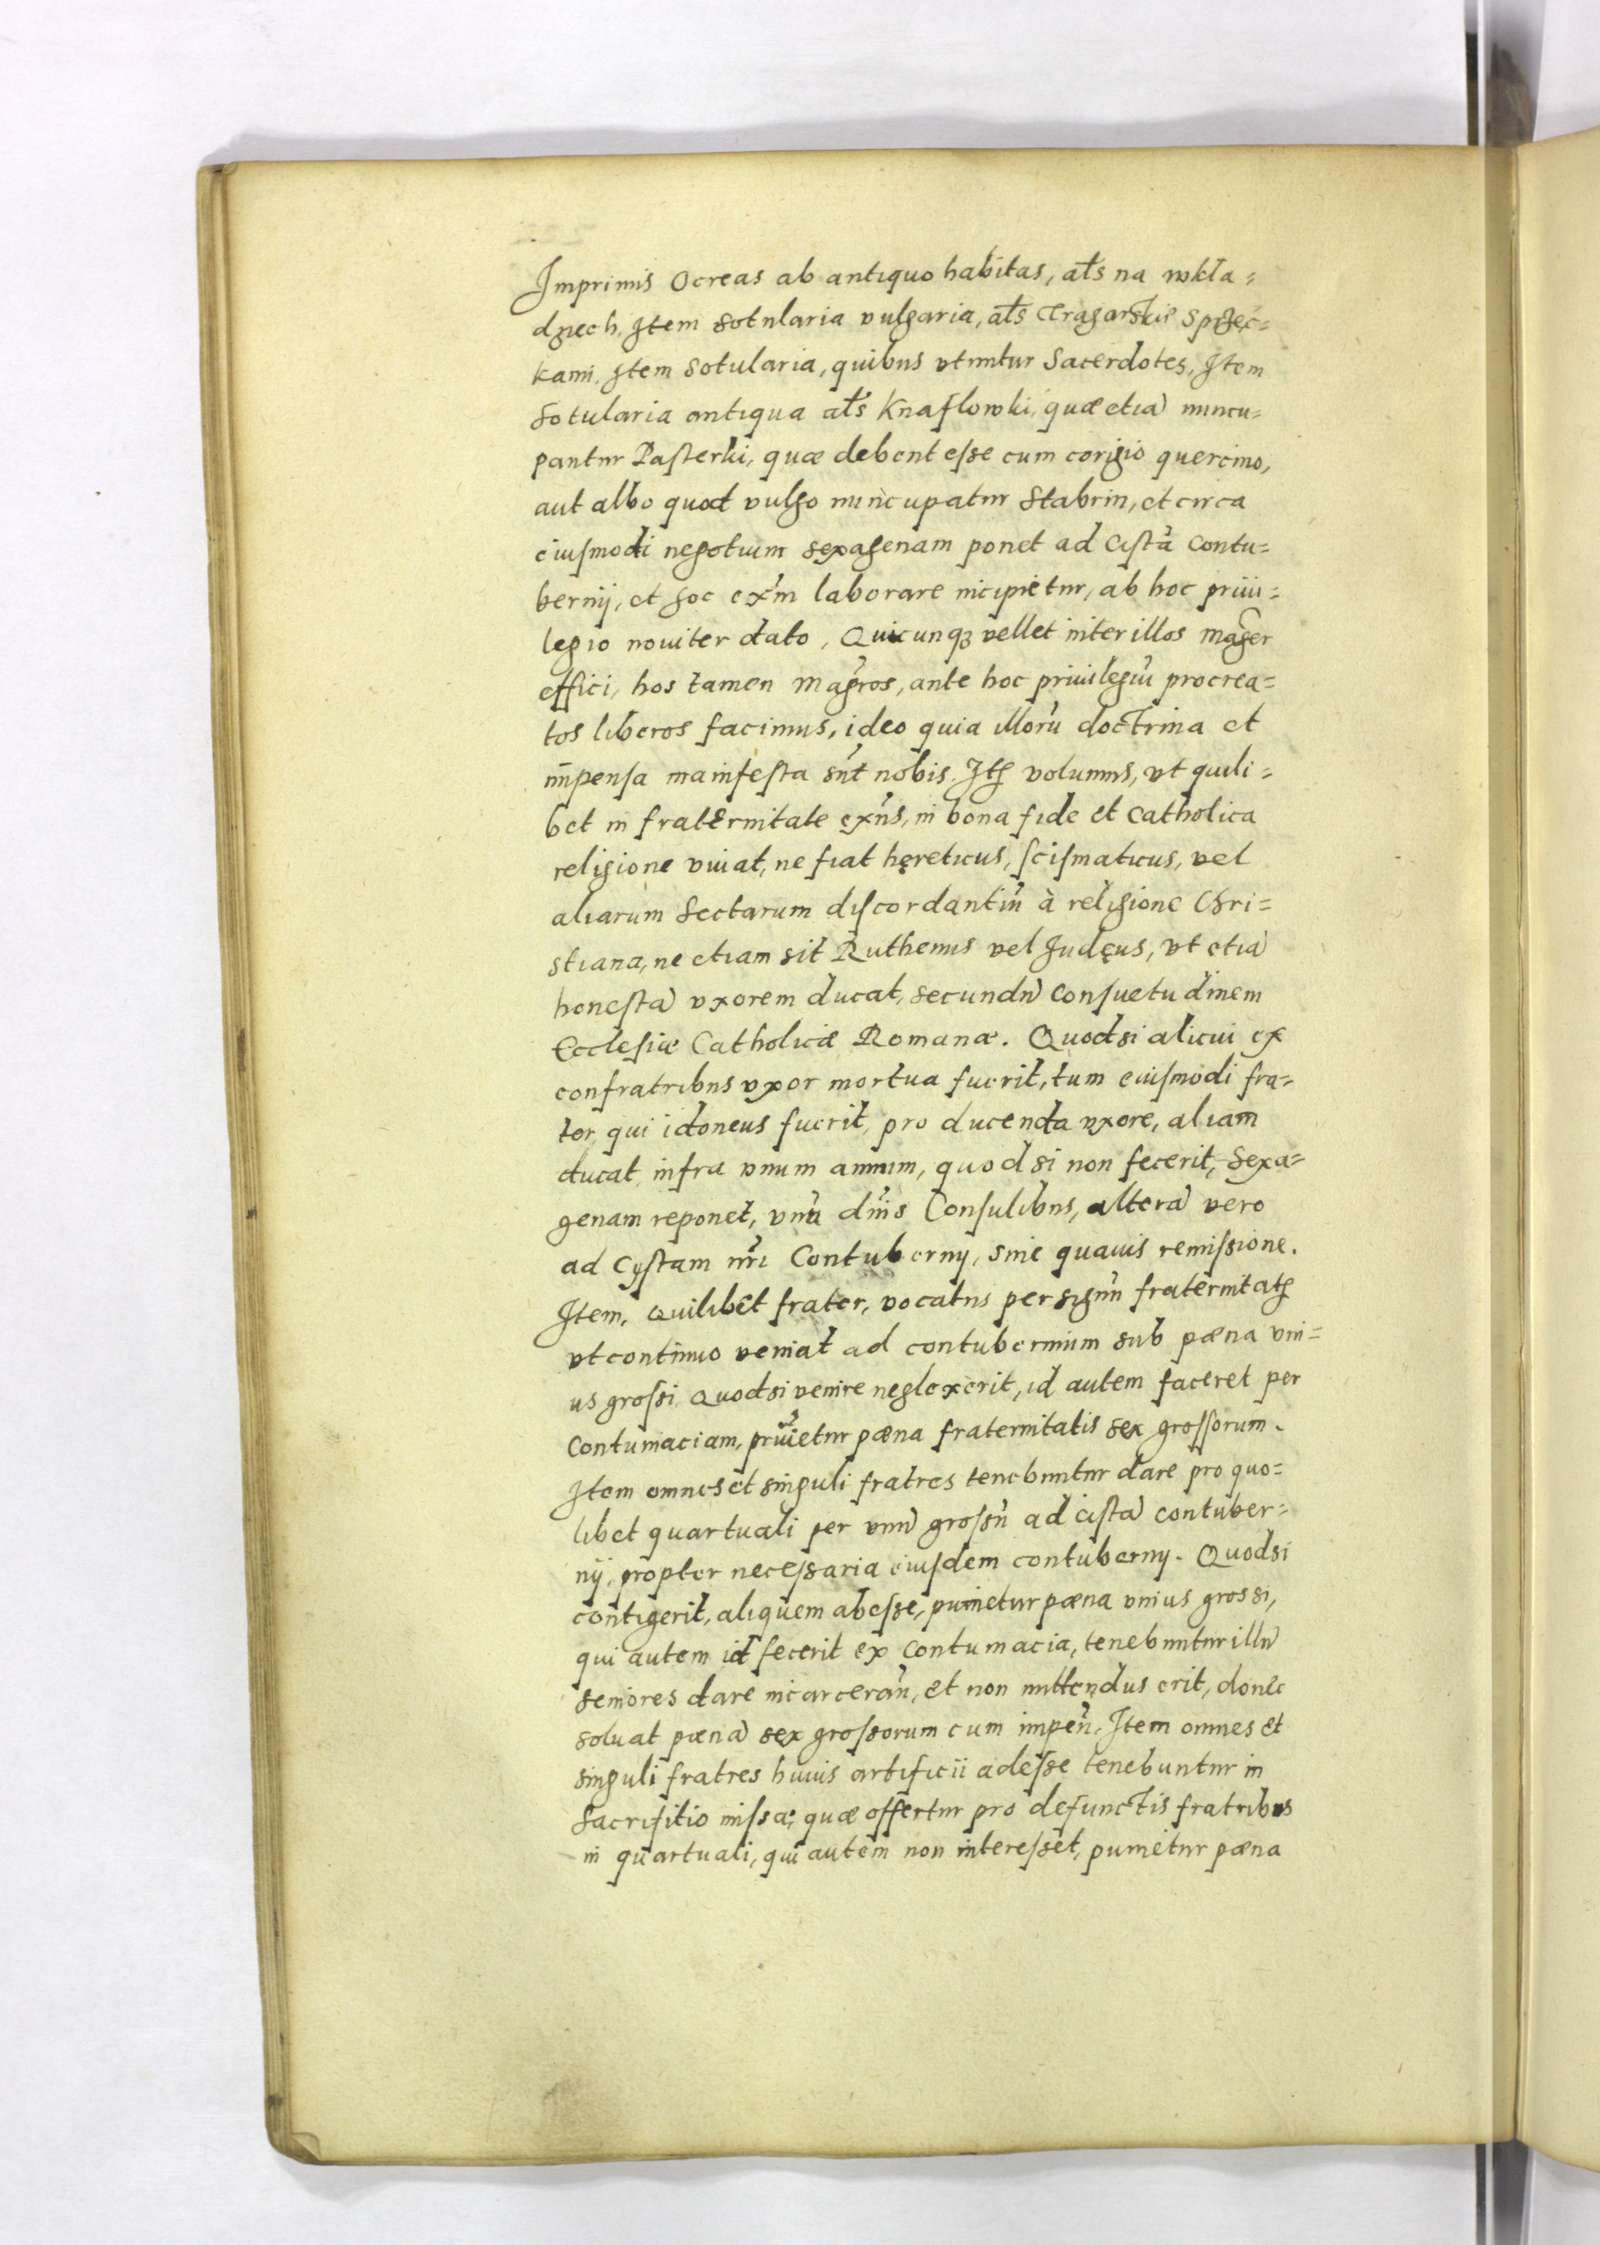 Imprimis Ocreas ab antiquo habitas, als na wkła=
dziech, Item sotularia vulgaria, als Tragarskie sprzęc=
kami, Item sotularia, quibus vtuntur Sacerdotes, Item
sotularia antiqua als Knaflowki, quæ etiã nuncu=
pantur Pasterki, quæ debent esse cum corigio quercino,
aut albo quod vulgo nuncupatur Stabrin, et circa
eiusmodi negotium sexagenam ponet ad cistã contu=
bernij, et hoc exm̃ laborare incipietur, ab hoc priui=
legio nouiter dato, Quicunqꝫ vellet inter illos mager
effici, hos tamen magros, ante hoc priuilegiũ procrea=
tos liberos facimus, ideo quia illorũ doctrina et
impensa manifesta snt nobis. Itẽ volumus, vt quili=
bet in fraternitate exñs, in bona fide et Catholica
religione viuat, ne fiat hęreticus, scismaticus, vel
aliarum Sectarum discordantiũ à religione Chri=
stiana, ne etiam sit Ruthenus vel Judęus, vt etiã
honestã vxorem ducat, secundũ consuetudinem
Ecclesiæ Catholicæ Romanæ. Quodsi alicui ex
confratribus vxor mortua fuerit, tum eiusmodi fra=
ter, qui idoneus fuerit, pro ducenda vxore, aliam
ducat infra vnum annum, quod si non fecerit, Sexa=
genam reponet, vnã dñis Consulibus, alterã vero
ad Cystam nri Contubernij, sine quauis remissione.
Item, Quilibet frater, vocatus per signũ fraternitatis
vt continuo veniat ad contubernium sub pæna vni=
us grossi, Quodsi venire neglexerit, id autem faceret per
Contumaciam, punietur pæna fraternitatis sex grossorum.
Item omnes et singuli fratres tenebuntur dare pro quo=
libet quartuali per vnũ grossũ ad cistã contuber=
nij, propter necessaria eiusdem contubernij. Quodsi
contigerit, aliquem abesse, punietur pæna vnius grossi,
qui autem id fecerit ex contumacia, tenebuntur illũ
seniores dare incarcerañ, et non mittendus erit, donec
soluat pænã sex grossorum cum impeñ. Item omnes et
singuli fratres huius artificii adesse tenebuntur in
Sacrifitio missæ, quæ offertur pro defunctis fratribus
in quartuali, qui autem non interesset, punietur pæna